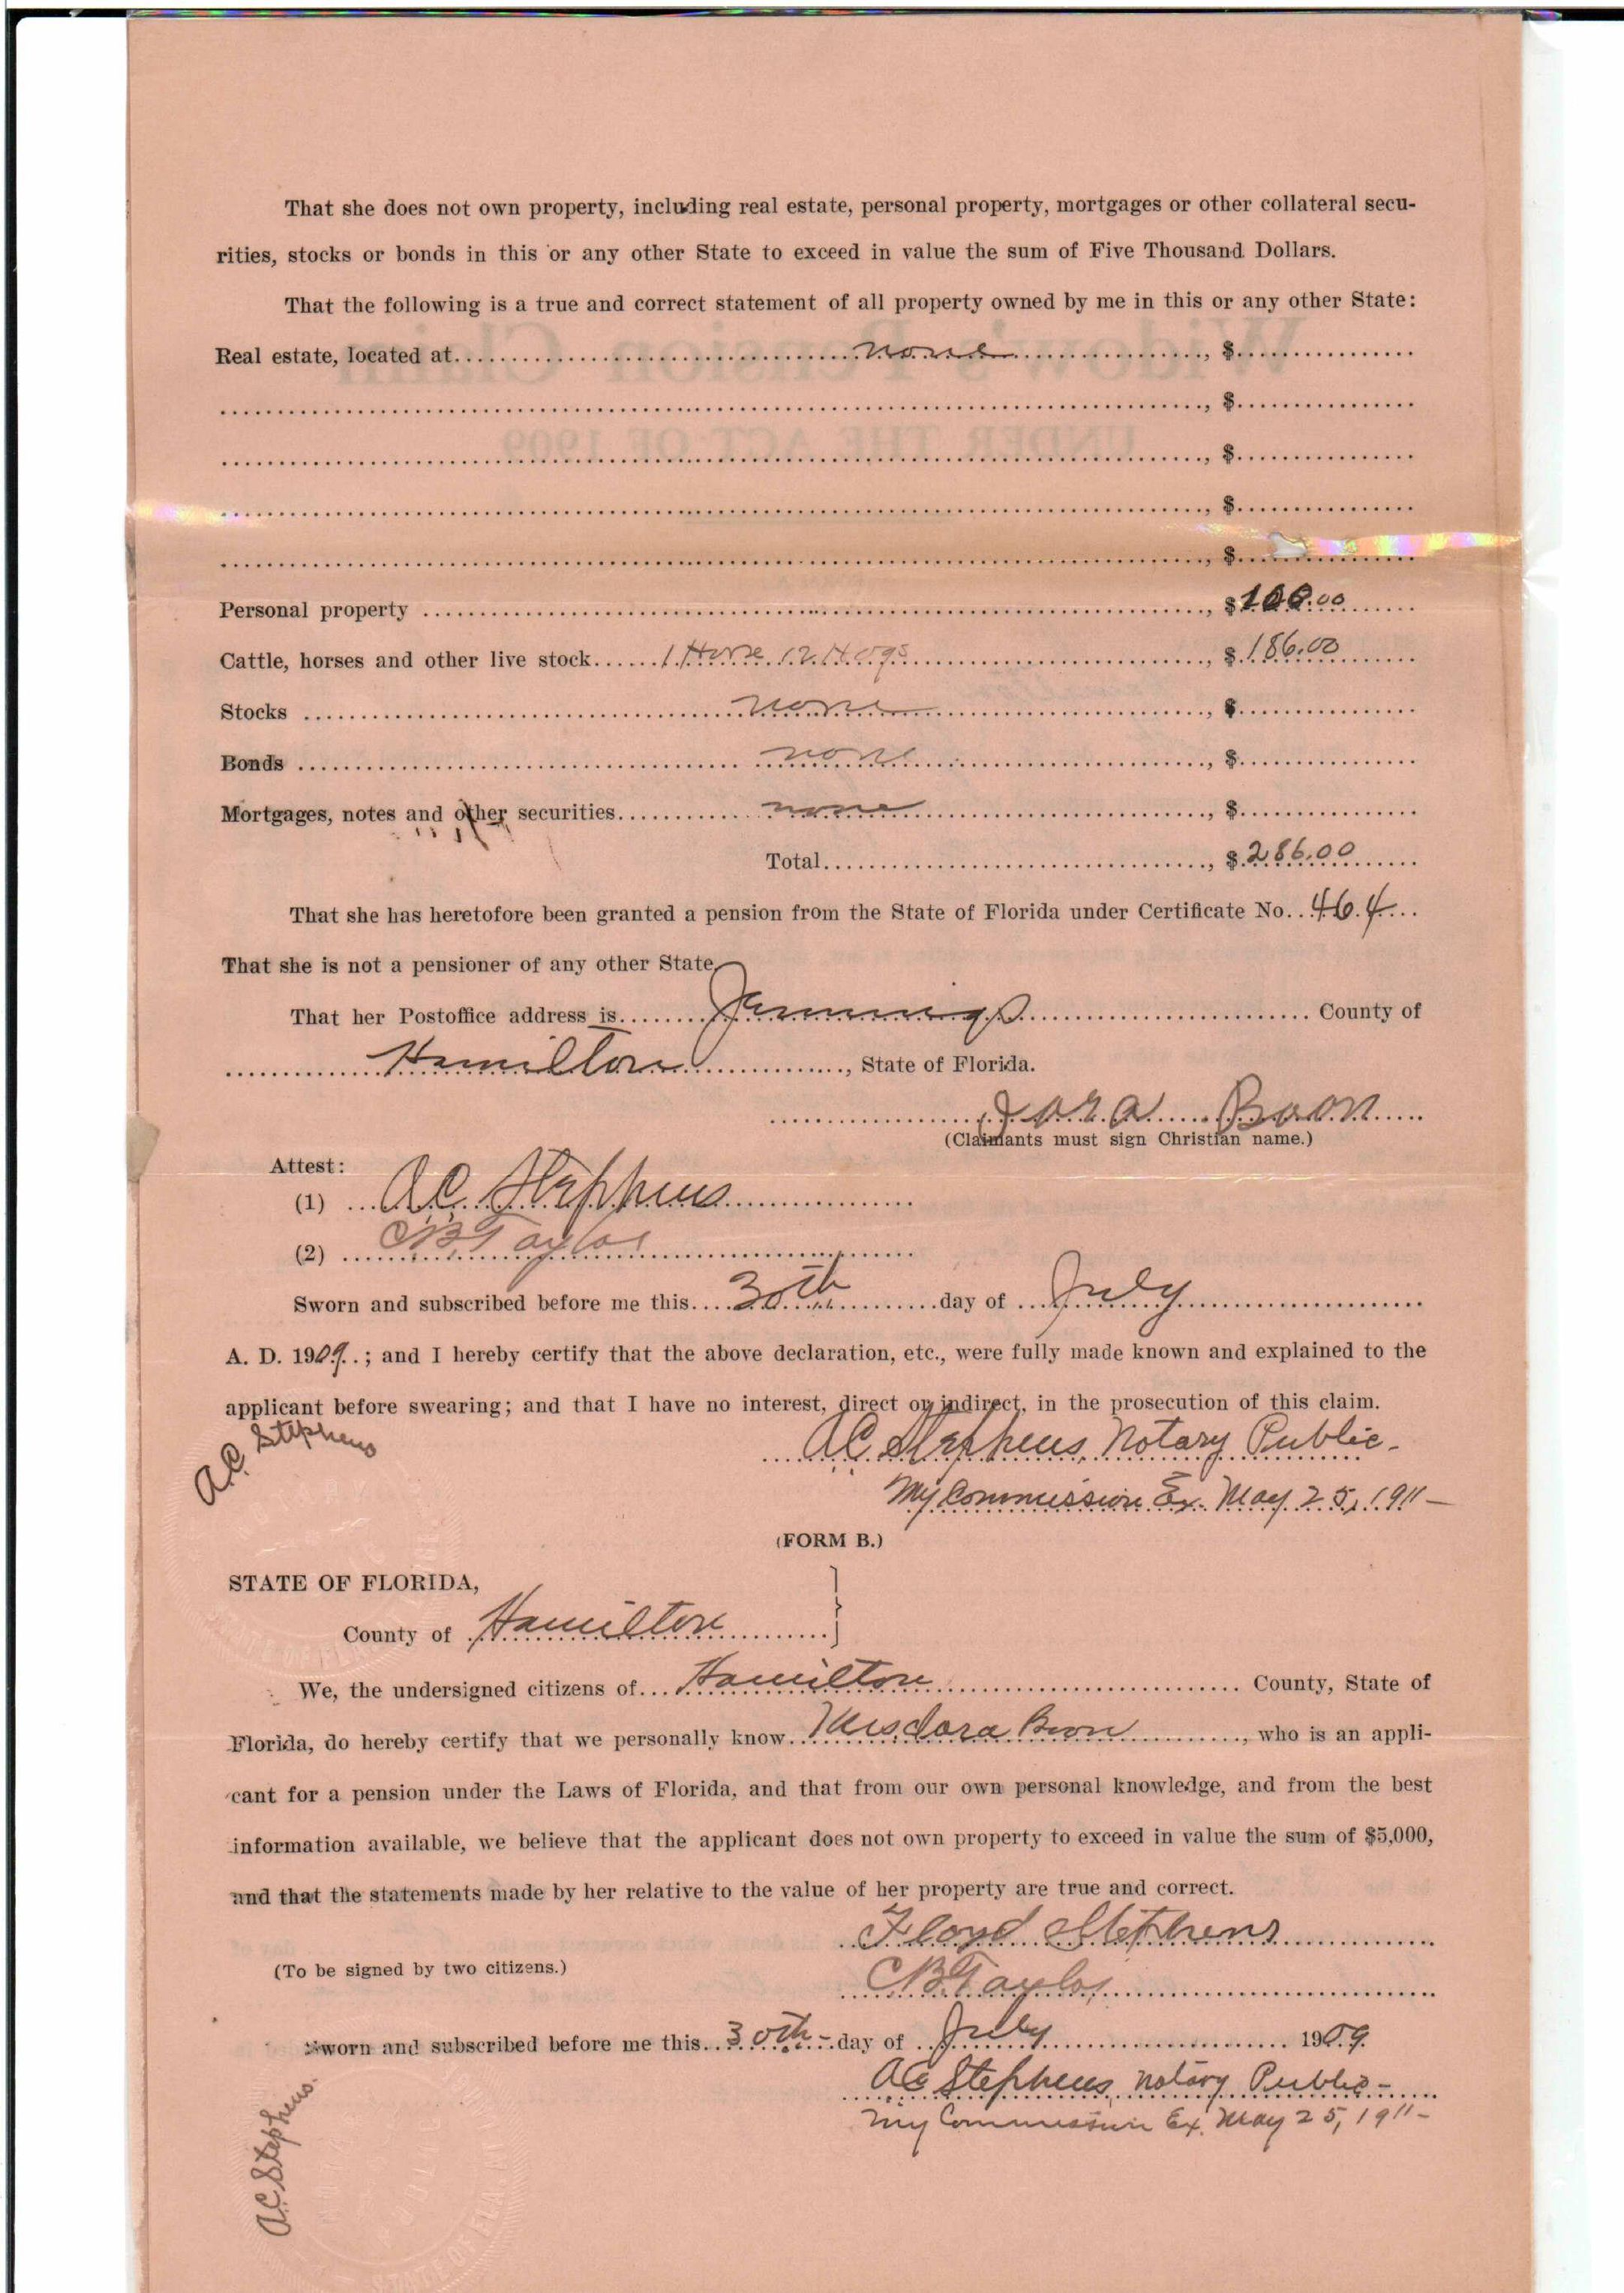 That she does not own property, including real estate, personal property, mortgages or other collateral secu-
rities, stocks or bonds in this or any other State to exceed in value the sum of Five Thousand Dollars.
That the following is a true and correct statement of all property owned by me in this or any other State:
Real estate, located at none , $
, $
, $
, $
, $
Personal property , $100.00
Cattle, horses and other live stock 1 Horse 12 Hogs , $ 186.00
Stocks none , $
Bonds none , $
Mortgages, notes and other securities none , $
Total , $ 286.00
That she has heretofore been granted a pension from the State of Florida under Certificate No. 464
That she is not a pensioner of any other State.
That her Postoffice address is Jennings County of
Hamilton , State of Florida.
Dora Boon
(Claimants must sign Christian name.)
Attest:
(1) A.C. Stephens
(2) C B Taylor
Sworn and subscribed before me this 30th day of July
A. D. 1909 ; and I hereby certify that the above declaration, etc., were fully made known and explained to the
applicant before swearing; and that I have no interest, direct or indirect, in the prosecution of this claim.
A.C. Stephens
AC Stephens, Notary Public.
My Commission Ex. May 25, 1911-
(FORM B.)
STATE OF FLORIDA,
County of Hamilton
We, the undersigned citizens of Hamilton County, State of
Florida, do hereby certify that we personally know Boon , who is an appli-
cant for a pension under the Laws of Florida, and that from our own personal knowledge, and from the best
information available, we believe that the applicant does not own property to exceed in value the sum of $5,000,
and that the statements made by her relative to the value of her property are true and correct.
Floyd Stephens
(To be signed by two citizens.)
C B Taylor
Sworn and subscribed before me this 30th- day of July 1909.
AC Stephens, Notary Public-
My Commission Ex. May 25, 1911-
A.C Stephens.